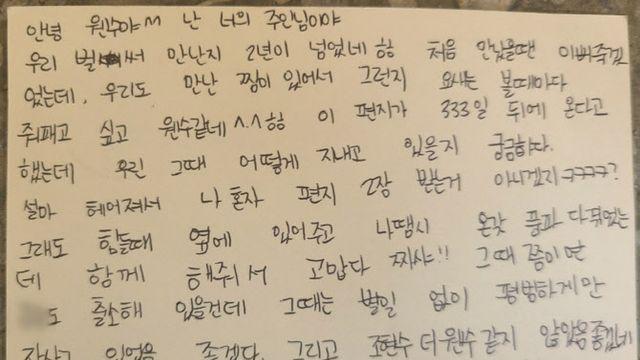 안녕 원수야ㅆ 난 너의 주인님이야
우리 벌써 만난지 2년이 넘었네 항 처음 만났을땐 이뻐죽겠
었는데, 우리도 만난 찜이 있어서 그런지 요새는 볼때마다
줘패고 싶고 원수같네^.^항 이 편지가 333일 뒤에 온다고
했는데 우린 그때 어떻게 지내고 있을지 궁금하다.
설마 헤어져서 나 혼자 편지 2장 받는거 아니겠지ㅋㅋㅋㅋ?
그래도 힘들때 옆에 있어주고 나땜시 온갖 풍파 다겪었는
데 함께 해줘서 고맙다 짜샤!! 그때 쯤이면
도 출소해 있을건데 그때는 별일 없이 평범하게 만
나자고 있었음 좋겠다. 그리고 조현수 더 원수 같지 않았음 좋겠네